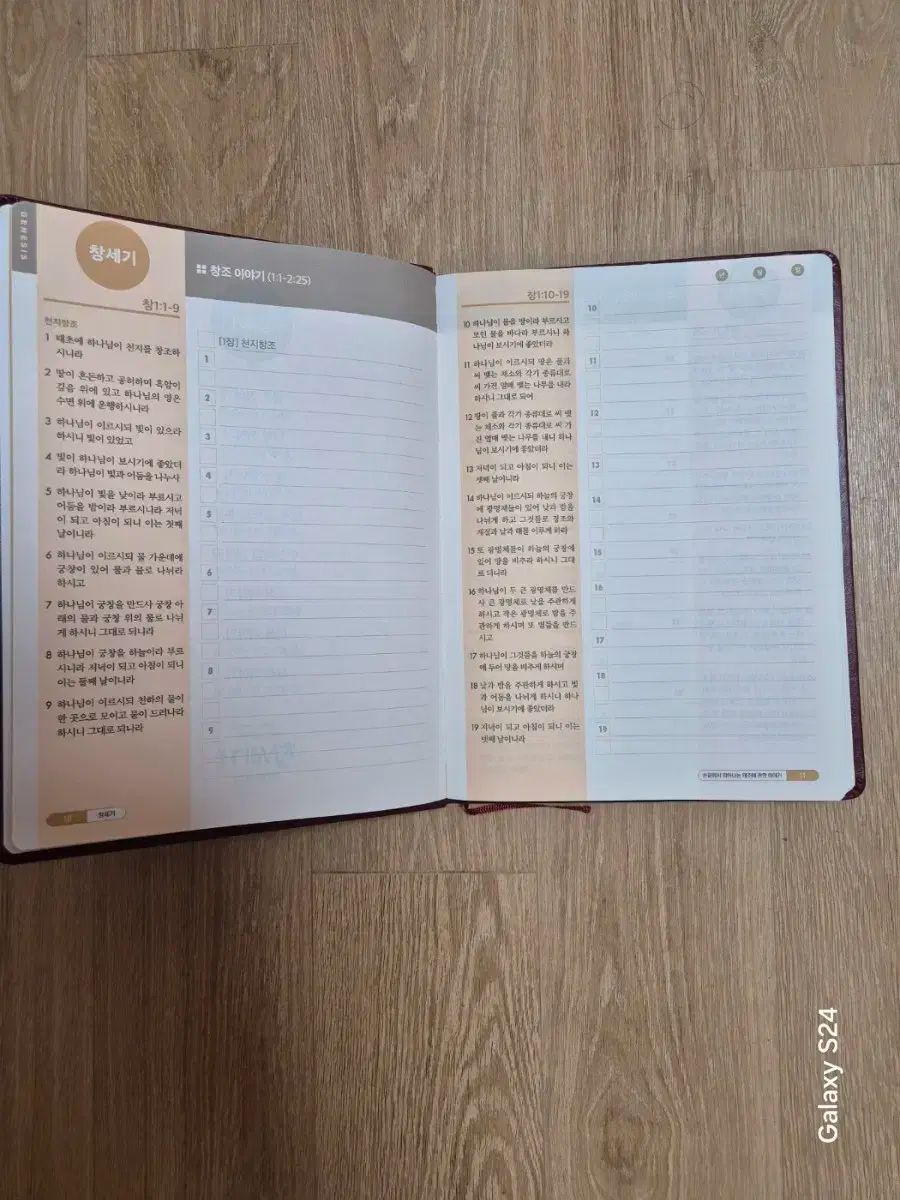 GENESIS
창세기
창조 이야기 (1:1-2:25)
창1:1-9
천지창조
1 태초에 하나님이 천지를 창조하
시니라
2 땅이 혼돈하고 공허하며 흑암이
깊음 위에 있고 하나님의 영은
수면 위에 운행하시니라
3 하나님이 이르시되 빛이 있으라
하시니 빛이 있었고
4 빛이 하나님이 보시기에 좋았더
라 하나님이 빛과 어둠을 나누사
5 하나님이 빛을 낮이라 부르시고
어둠을 밤이라 부르시니라 저녁
이 되고 아침이 되니 이는 첫째
날이니라
6 하나님이 이르시되 물 가운데에
궁창이 있어 물과 물로 나뉘라
하시고
7 하나님이 궁창을 만드사 궁창 아
래의 물과 궁창 위의 물로 나뉘
게 하시니 그대로 되니라
8 하나님이 궁창을 하늘이라 부르
시니라 저녁이 되고 아침이 되니
이는 둘째 날이니라
9 하나님이 이르시되 천하의 물이
한 곳으로 모이고 뭍이 드러나라
하시니 그대로 되니라
[1장] 천지창조
1
2
3
4
5
6
7
8
9
10 창세기
창1:10-19
10 하나님이 뭍을 땅이라 부르시고
모인 물을 바다라 부르시니 하
나님이 보시기에 좋았더라
11 하나님이 이르시되 땅은 풀과
씨 맺는 채소와 각기 종류대로
씨 가진 열매 맺는 나무를 내라
하시니 그대로 되어
12 땅이 풀과 각기 종류대로 씨 맺
는 채소와 각기 종류대로 씨 가
진 열매 맺는 나무를 내니 하나
님이 보시기에 좋았더라
13 저녁이 되고 아침이 되니 이는
셋째 날이니라
14 하나님이 이르시되 하늘의 궁창
에 광명체들이 있어 낮과 밤을
나뉘게 하고 그것들로 징조와
계절과 날과 해를 이루게 하라
15 또 광명체들이 하늘의 궁창에
있어 땅을 비추라 하시니 그대
로 되니라
16 하나님이 두 큰 광명체를 만드
사 큰 광명체로 낮을 주관하게
하시고 작은 광명체로 밤을 주
관하게 하시며 또 별들을 만드
시고
17 하나님이 그것들을 하늘의 궁창
에 두어 땅을 비추게 하시며
18 낮과 밤을 주관하게 하시고 빛
과 어둠을 나뉘게 하시니 하나
님이 보시기에 좋았더라
19 저녁이 되고 아침이 되니 이는
넷째 날이니라
년 월 일
10
11
12
13
14
15
16
17
18
19
손끝에서 피어나는 태초에 관한 이야기 11
Galaxy S24